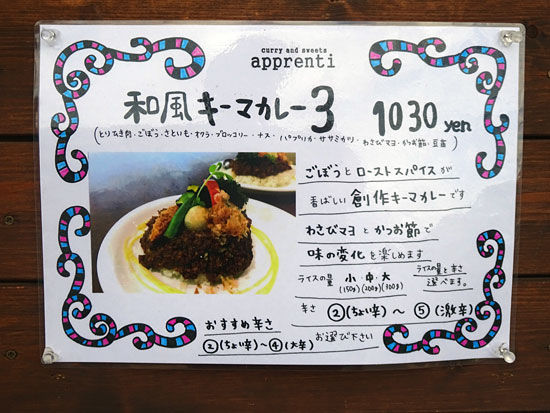 curry and sweets
apprenti
和風キーマカレー3 1030yen
(とりひき肉・ごぼう・さといも・オクラ・ブロッコリー・ナス・パプリカ・ササミカツ・わさびマヨ・かつお節・豆苗)
ごぼうとローストスパイスが
香ばしい創作キーマカレーです
わさびマヨとかつお節で
味の変化を楽しめます
ライスの量 小・中・大
(150g)(200g)(300g)
ライスの量と辛さ
選べます。
辛さ ②(ちょい辛)〜⑤(激辛)
お選び下さい
おすすめ辛さ
②(ちょい辛)〜④(大辛)